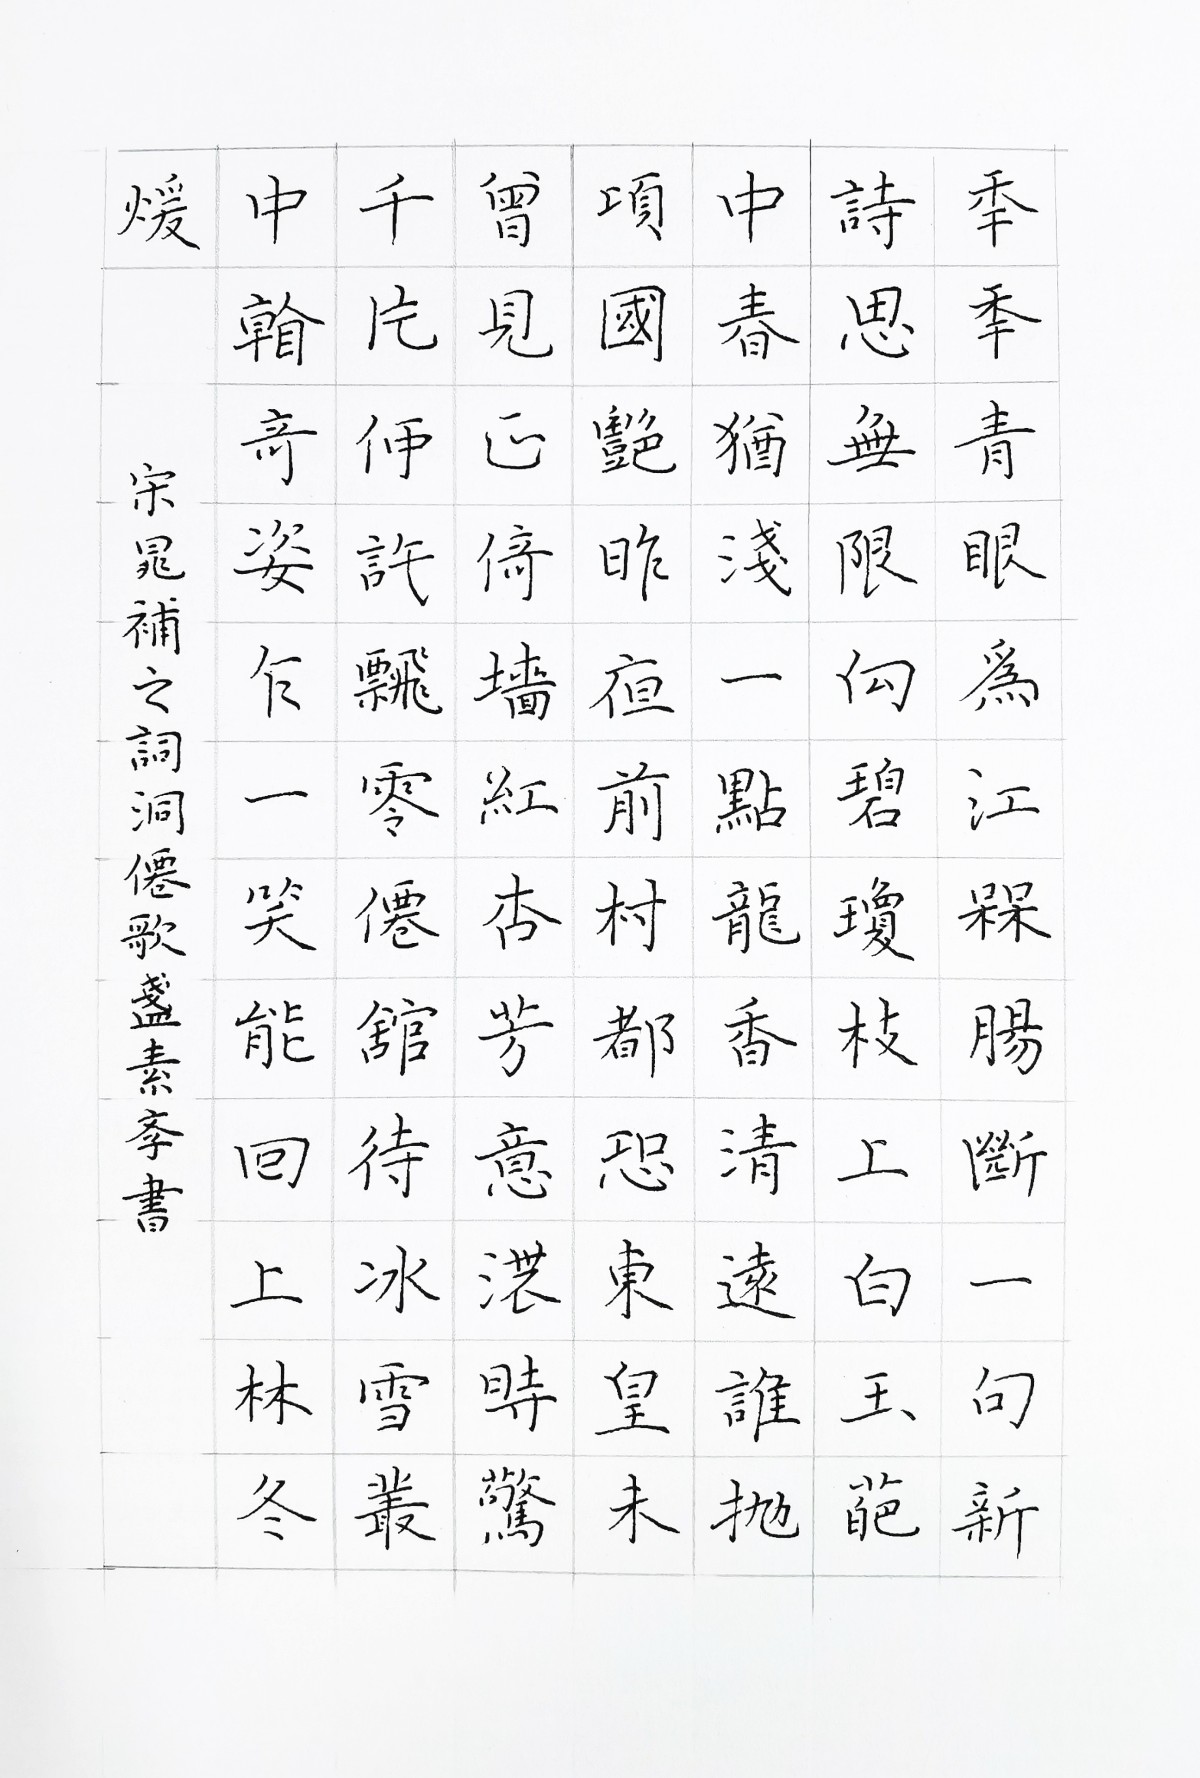 秊秊青眼爲江槑腸斷一句新
詩思無限向碧瓊枝上白玉葩
中春猶淺一點龍香清遠誰抛
項國艷昨夜前村都恐東皇未
曾見正倚墻紅杏芳意濃時驚
千片何許飄零僊舘待冰雪叢
中看奇姿乍一笑能回上林冬
煖
宋晁補之詞洞僊歌盞素書